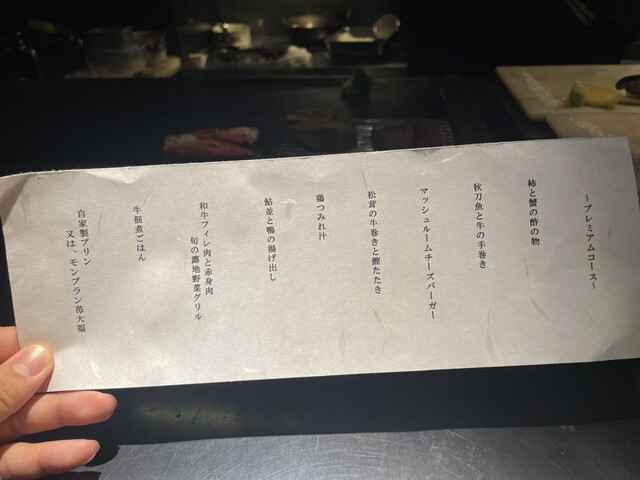 ~プレミアムコース~
柿と蟹の酢の物
秋刀魚と牛の手巻き
マッシュルームチーズバーガー
松茸の牛巻きと鰹たたき
鶏つみれ汁
鮎並と鴨の揚げ出し
和牛フィレ肉と赤身肉
旬の露地野菜グリル
牛佃煮ごはん
自家製プリン
又は、モンブラン苺大福